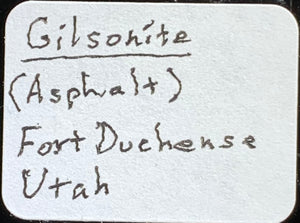 Gilsonite
(Asphalt)
Fort Duchense
Utah